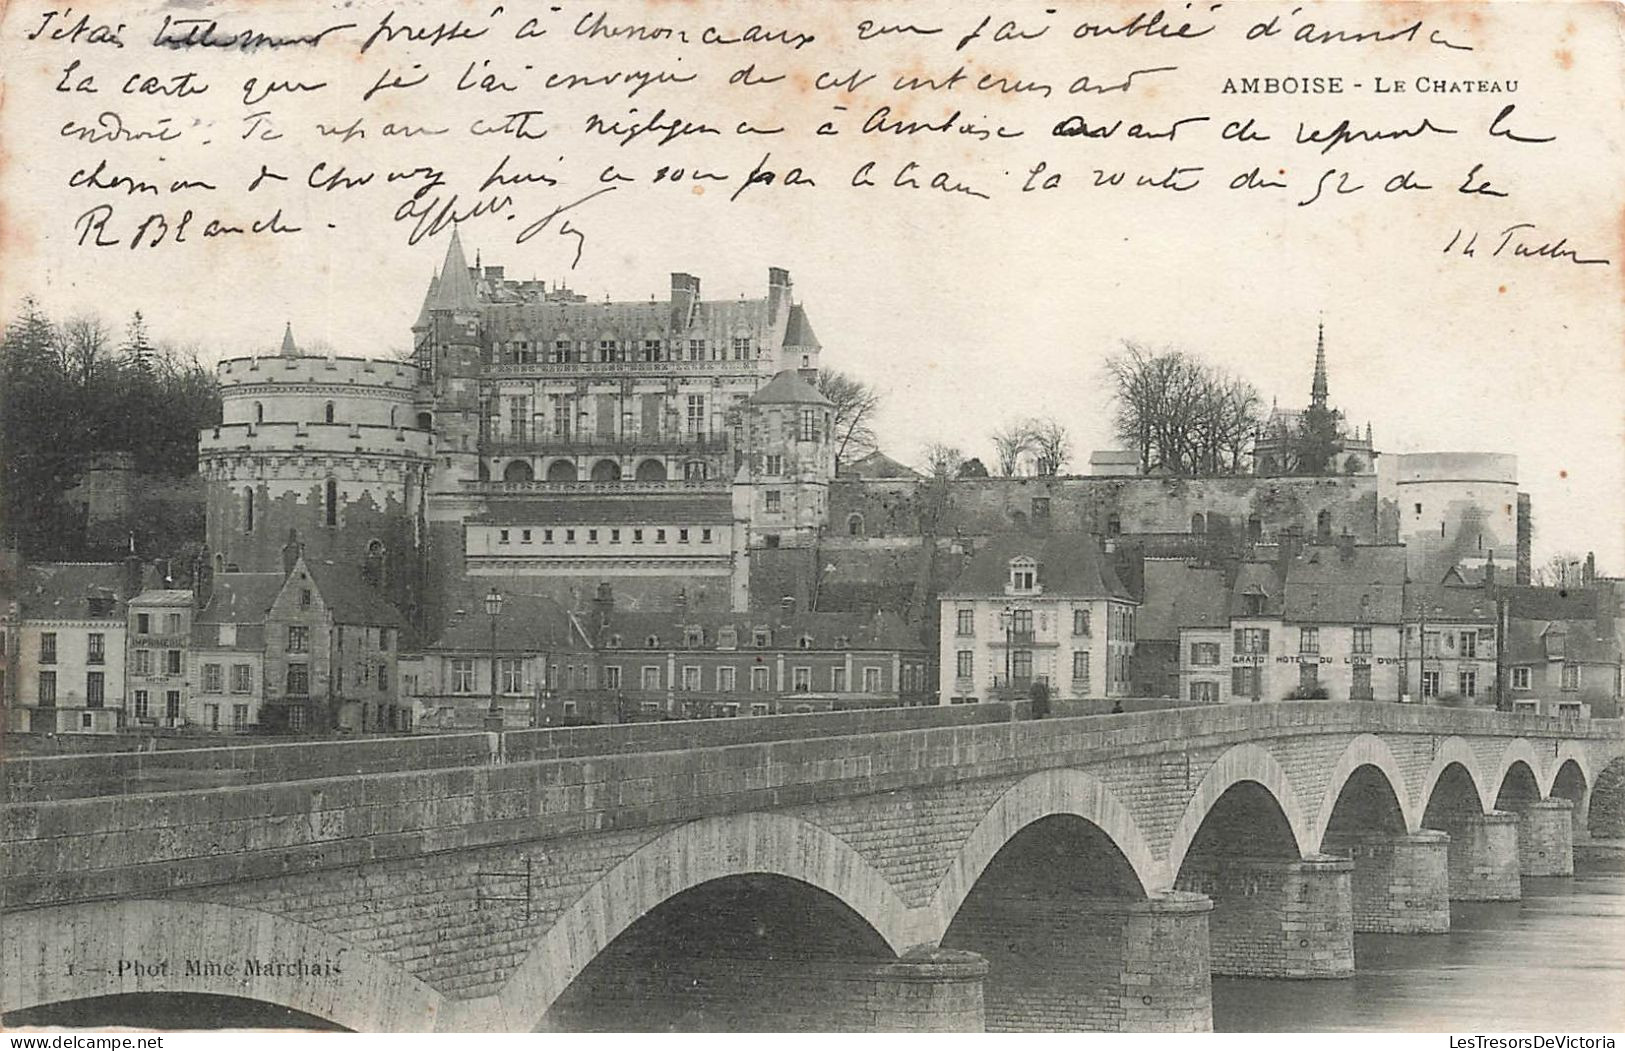 J'étais tellement pressé à Chenonceaux que j'ai oublié d'annoter
la carte que je t'ai envoyée de cet interessant
AMBOISE - LE CHATEAU
endroit. Je repare cette négligence à Amboise avant de reprendre le
chemin de puis ce soir par le train la route du 52 de la
R Blanche.
IMPRIMERIE
GRAND HOTEL DU LION D'OR
1 - Phot. Mme Marchais
LesTresorsDeVictoria
delcampe.net